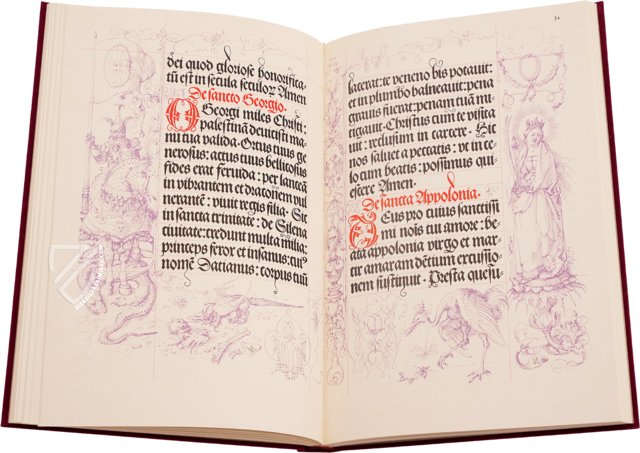 dei quod gloriose honorifica
tū est in secula seculoꝝ Amen
De sancto Georgio.
O Georgi miles Christi:
palestinā deuicisti ma
nu tua valida. Ortus tuus ge
nerosus: actus tuus bellicosus
fides erat feruida: per lanceā
in vibrantem et draconem vul
nerantē: viuit regis filia. Sit
in sancta trinitate: de Silena
ciuitate: credunt multa milia:
princeps feror et insanus: cui⁹
nomē Dacianus: corpus tuū
24
lacerat: te veneno bis potauit:
et in plumbo balneauit: pena
grauius fuerat: penam tuā mi
tigauit. Christus cum te visita
uit: reclusum in carcere. Hic
nos saluet a peccatis: vt in ce
lo cum beatis: possimus qui
escere Amen.
De sancta Appolonia.
Deus pro cuius sanctissi
mi nois tui amore: be
ata appolonia virgo et mar
tir amaram dētium excussio
nem sustinuit. Presta quesu